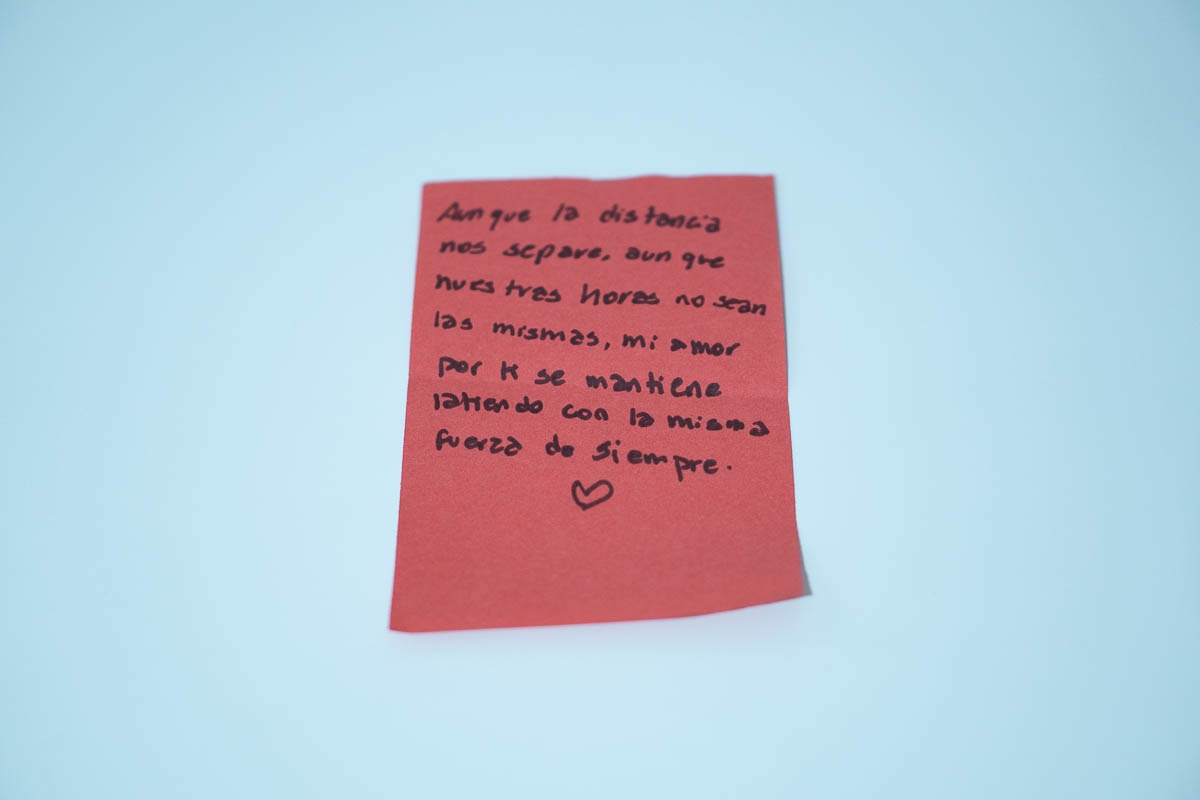 Aunque la distancia
nos separe, aunque
nuestras horas no sean
las mismas, mi amor
por ti se mantiene
latiendo con la misma
fuerza de siempre.